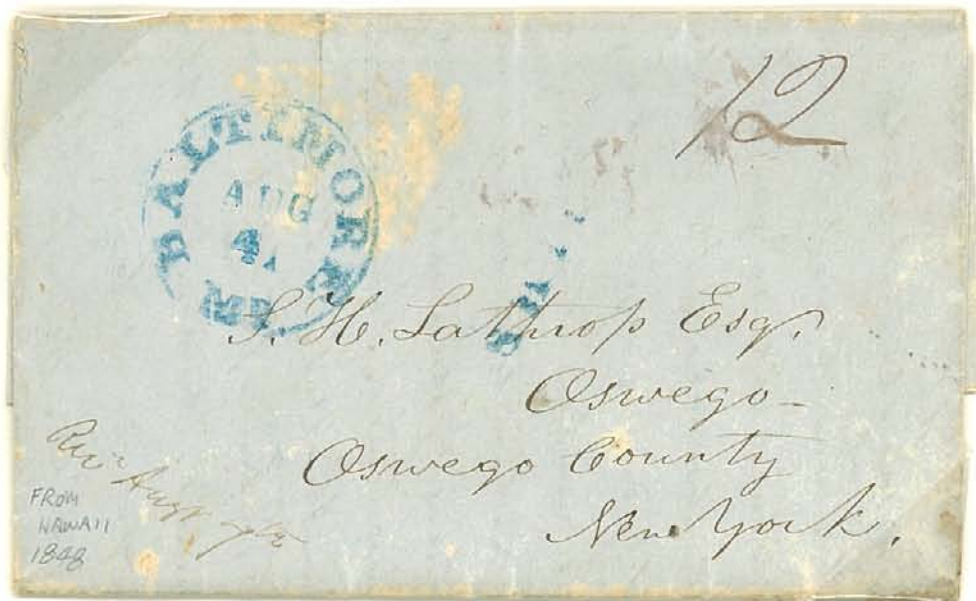 12
BALTIMORE
AUG
4
MD
S. H. Lathrop Esq.
Oswego -
Oswego County
New York.
Rec'd Augt
FROM
HAWAII
1848